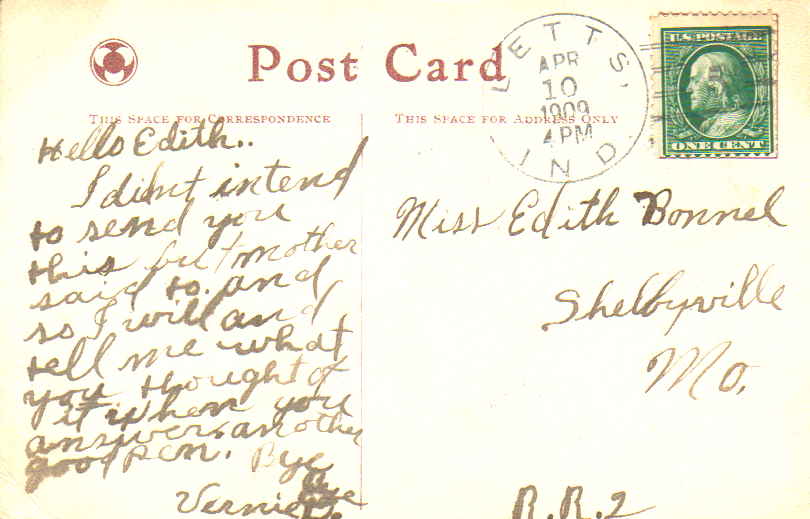 Post Card
THIS SPACE FOR CORRESPONDENCE
THIS SPACE FOR ADDRESS ONLY
LETTS, IND.
APR
10
1909
4 PM
U.S. POSTAGE
ONE CENT
Hello Edith..
I didnt intend
to send you
this but mother
said to. and
so I will and
tell me what
you thought of
it when you
answer. another
good pen. Bye
Vernie
Miss Edith Bonnel
Shelbyville
Mo.
R.R.2